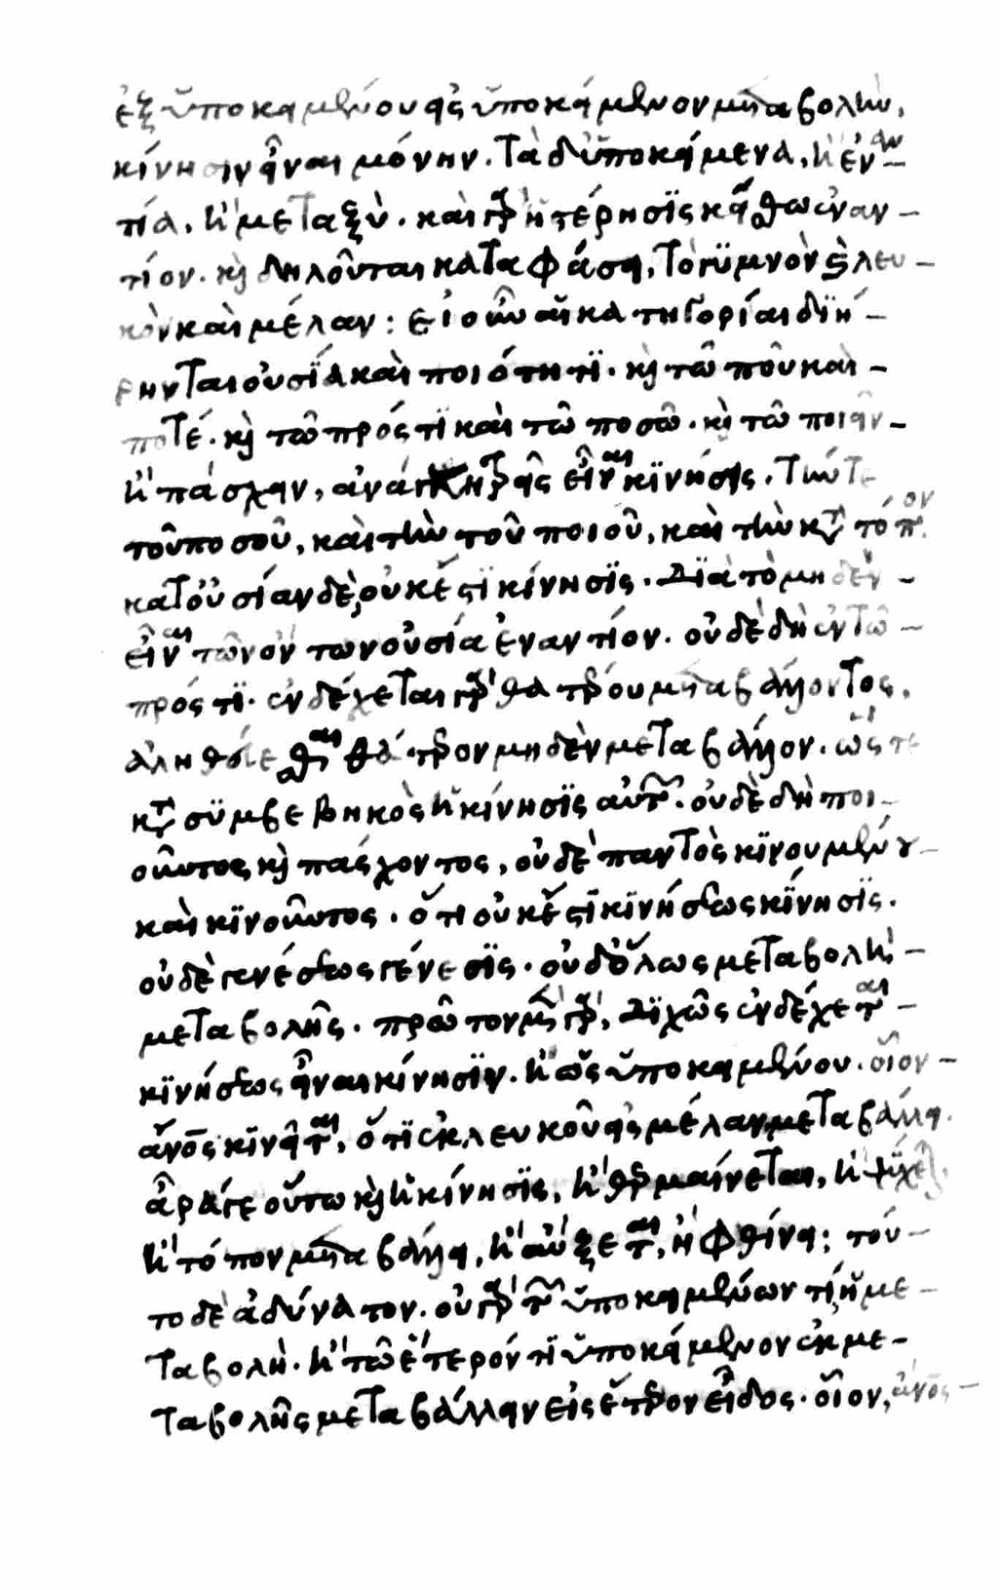 ἐξ ὑποκειμένου εἰς ὑποκείμενον μεταβολὴν,
κίνησιν εἶναι μόνην. τὰ δ' ὑποκείμενα, ἢ ἐναν–
τία, ἢ μεταξύ. καὶ γὰρ ἡ στέρησις κείσθω ἐναν–
τίον. καὶ δηλοῦνται καταφάσει, τὸ γυμνὸν καὶ λευ–
κὸν καὶ μέλαν: εἰ οὖν αἱ κατηγορίαι διή–
ρηνται οὐσία καὶ ποιότητι. καὶ τῶ ποῦ καὶ –
ποτέ. καὶ τῶ πρός τι καὶ τῶ ποσῶ. καὶ τῶ ποιεῖν –
ἢ πάσχειν, ἀνάγκη τρεῖς εἶναι κινήσεις. τήν τε
τοῦ ποσοῦ, καὶ τὴν τοῦ ποιοῦ, καὶ τὴν κατὰ τόπον.
κατ' οὐσίαν δὲ, οὐκ ἔστι κίνησις. διὰ τὸ μηδὲν –
εἶναι τῶν ὄντων οὐσία ἐναντίον. οὐδὲ δὴ ἐν τῶ –
πρός τι. ἐνδέχεται γὰρ θατέρου μεταβάλλοντος,
ἀληθεύεσθαι θάτερον μηδὲν μεταβάλλον. ὥστε
κατὰ συμβεβηκὸς ἡ κίνησις αὐτῶν. οὐδὲ δὴ ποι–
οῦντος καὶ πάσχοντος, οὐδὲ παντὸς κινουμένου –
καὶ κινοῦντος. ὅτι οὐκ ἔστι κινήσεως κίνησις.
οὐδὲ γενέσεως γένεσις. οὐδ' ὅλως μεταβολὴ –
μεταβολῆς. πρῶτον μὲν γὰρ, διχῶς ἐνδέχεται –
κινήσεως εἶναι κίνησιν. ἢ ὡς ὑποκειμένου. οἷον –
ἄνος κινεῖται, ὅτι ἐκ λευκοῦ εἰς μέλαν μεταβάλλει.
ἆρά γε οὕτω καὶ ἡ κίνησις, ἢ θερμαίνεται, ἢ ψύχεται,
ἢ τόπον μεταβάλλει, ἢ αὔξεται, ἢ φθίνει; τοῦ–
το δὲ ἀδύνατον. οὐ γὰρ τῶν ὑποκειμένων τί, ἡ με–
ταβολή. ἢ τῶ ἕτερόν τι ὑποκείμενον ἐκ με–
ταβολῆς μεταβάλλειν εἰς ἕτερον εἶδος. οἷον, ἄνος –